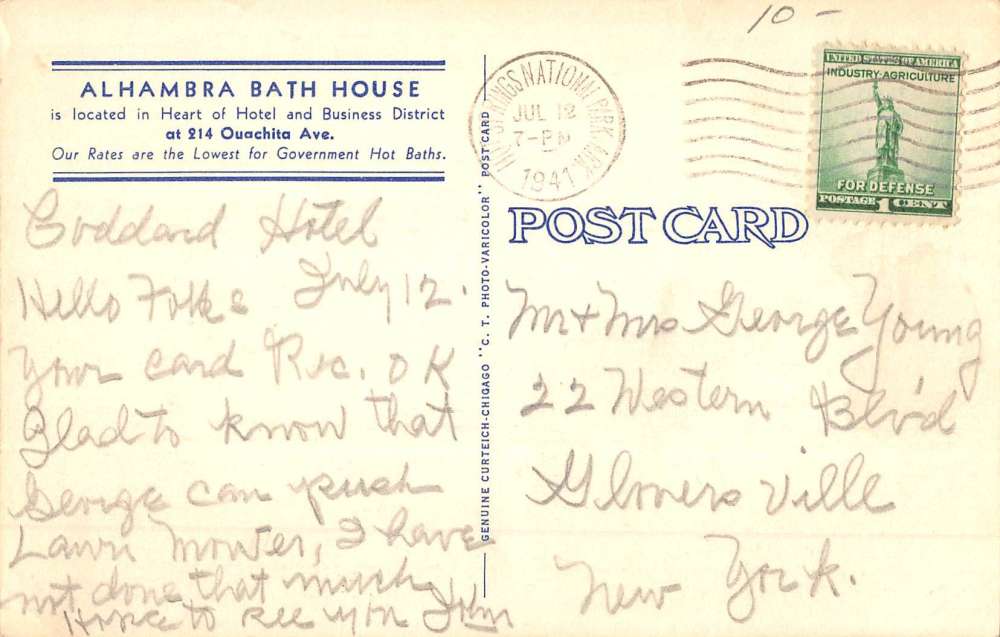 10-
ALHAMBRA BATH HOUSE
is located in Heart of Hotel and Business District
at 214 Ouachita Ave.
Our Rates are the Lowest for Government Hot Baths.
Goddard Hotel
July 12.
Hello Folks
Your card Rec. OK
Glad to know that
George can push
Lawn Mower, I have
not done that much
Hope to see you John
GENUINE CURTEICH-CHICAGO "C. T. PHOTO-VARICOLOR" POST CARD
HOT SPRINGS NATIONAL PARK, ARK.
JUL 12
7-PM
1941
UNITED STATES OF AMERICA
INDUSTRY-AGRICULTURE
FOR DEFENSE
POSTAGE 1 CENT
POST CARD
Mr + Mrs George Young
22 Western Blv'd
Gloversville
New York.